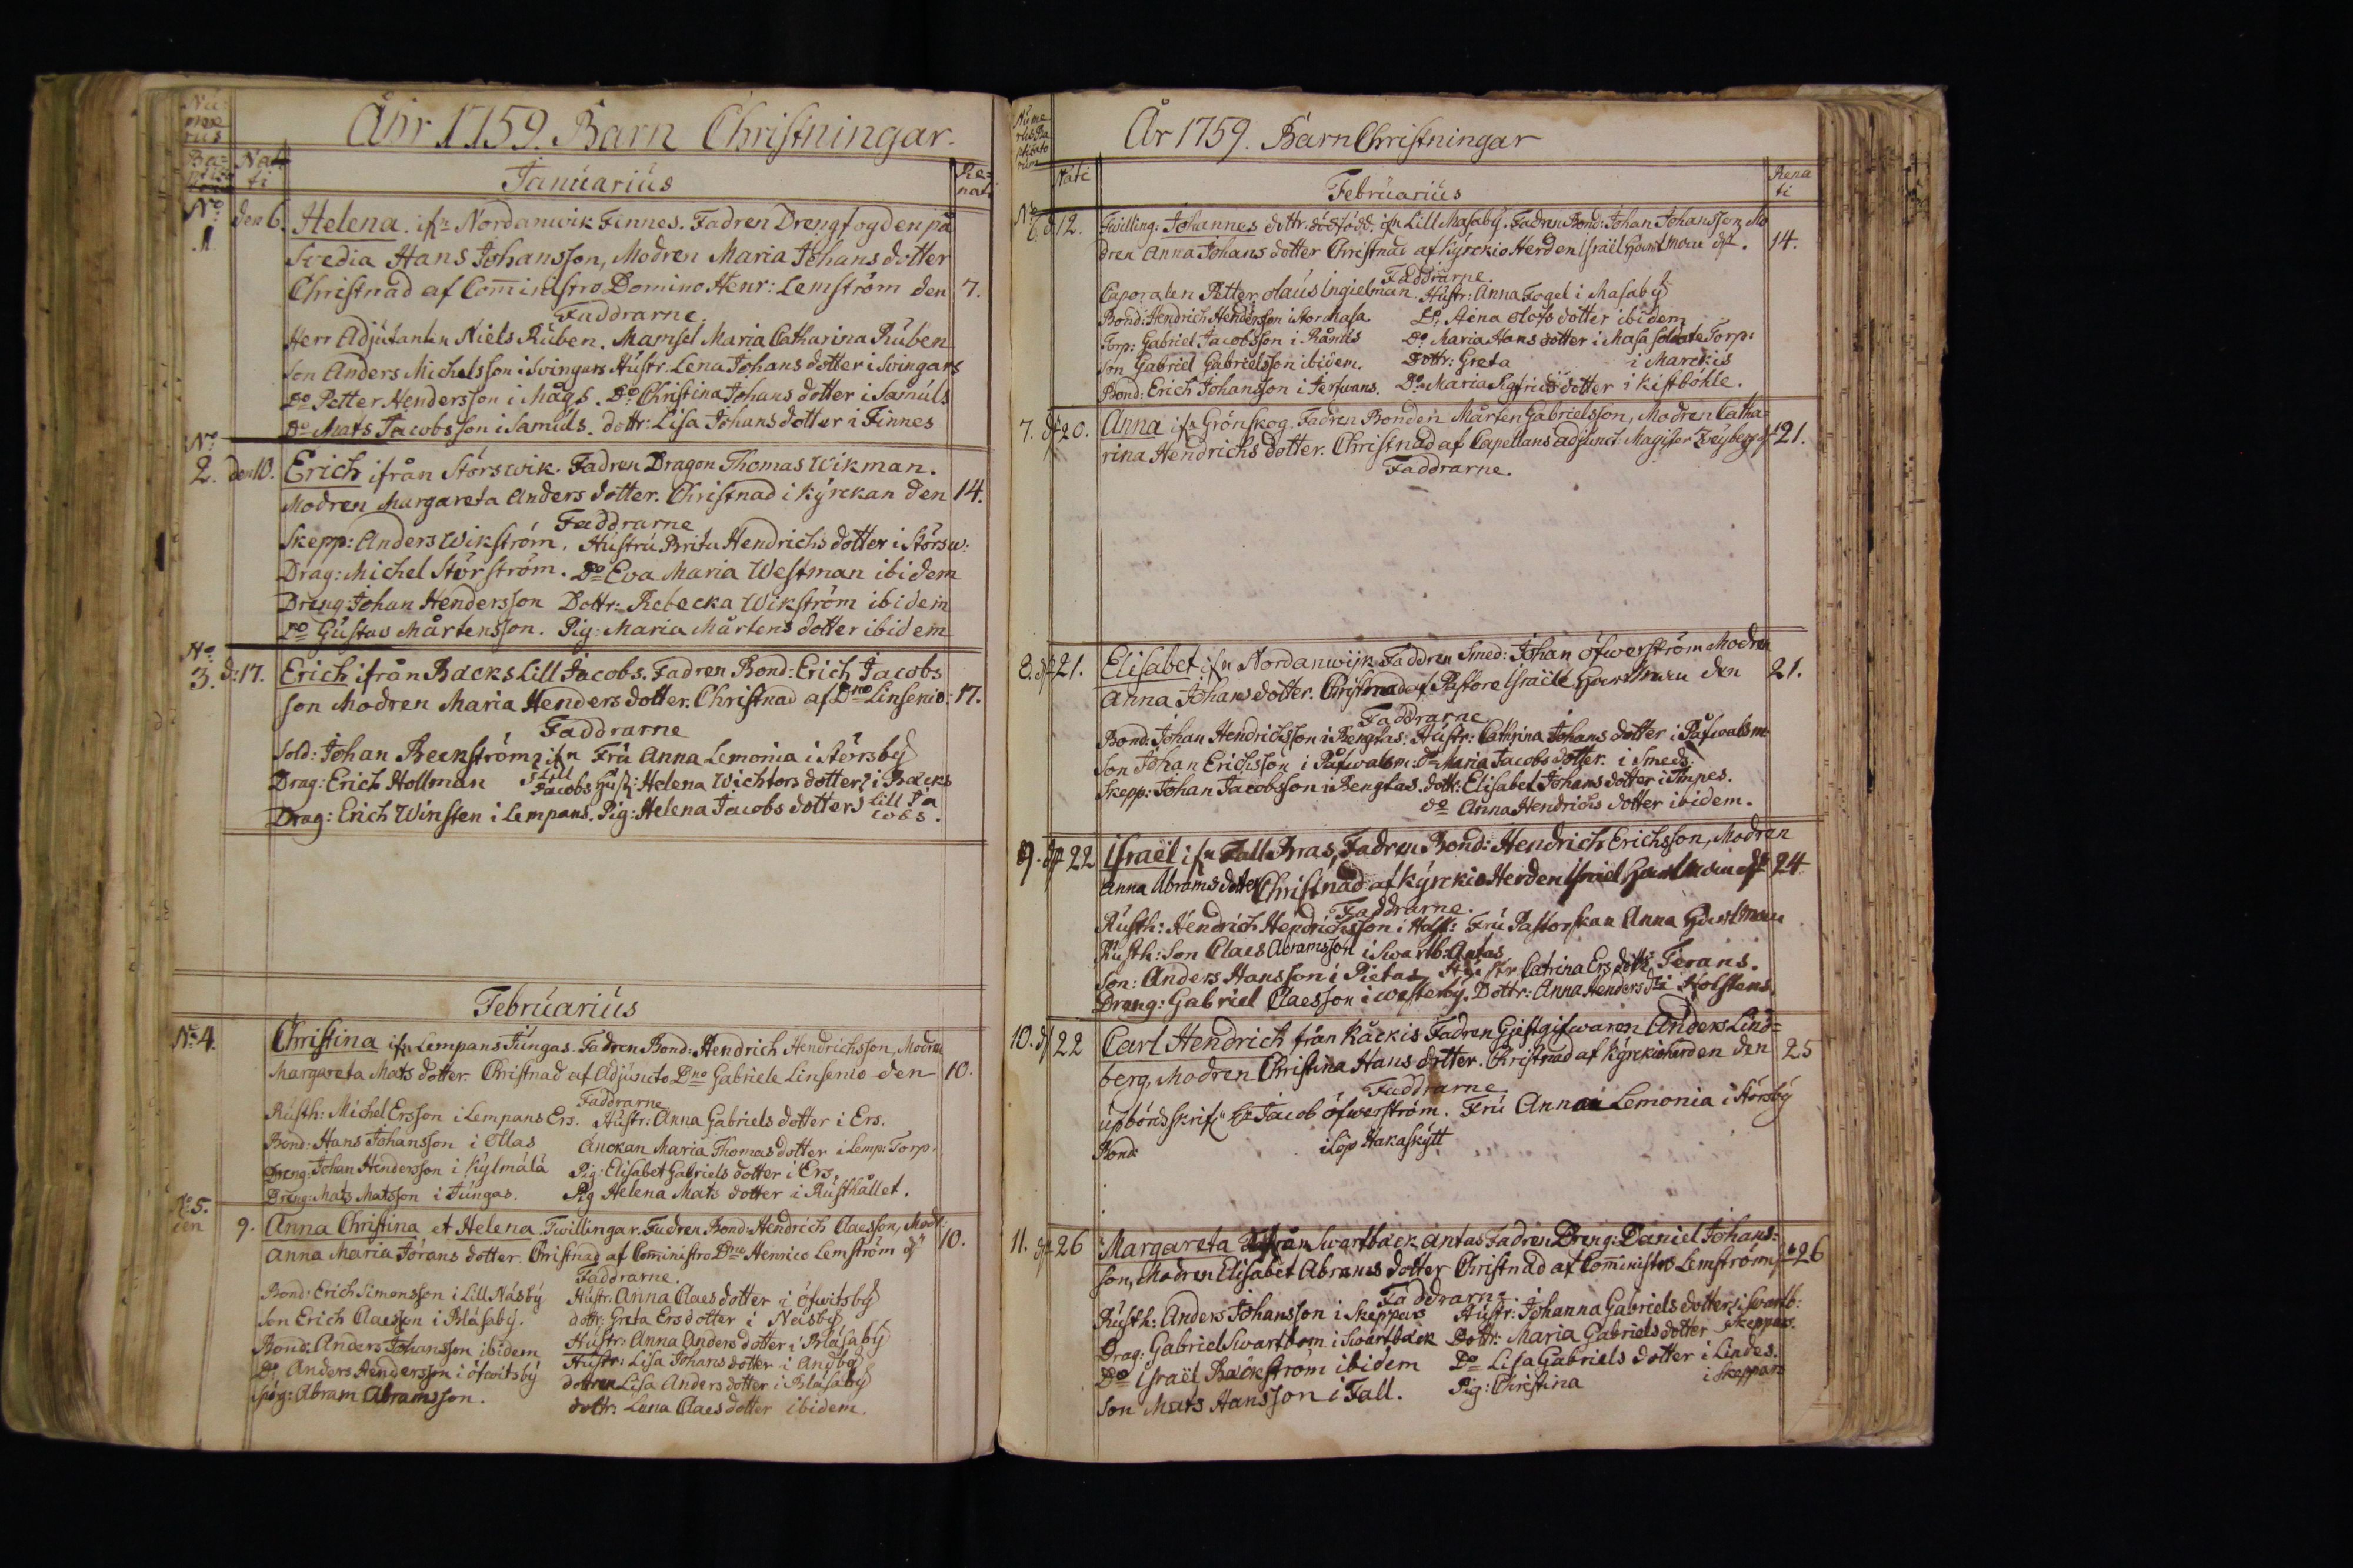 Nu
me
rus
Åhr 1759. Barn Christningar.
Nati
Januarius
Renat
No 1 den 6. Helena. ifn Nordanwik Finnes. Fadren Drengfogden på
Svedia Hans Johansson, Modren Maria Johans dotter
Christnad af Com̄inistro Domino Henr: Lemström den 7.
Faddrarne.
Herr Adjutanten Niels Ruben. Mamsel Maria Catharina Ruben
Son Anders Michelsson i Svingars Hustr. Lena Johans dotter i Svingars
Do Petter Hendersson i Mågs. Do Christina Johans dotter i Samuls
Do Mats Jacobsson i Samuls. dottr: Lisa Johans dotter i Finnes
No 2. den 10. Erich ifrån Störswik. Fadren Dragon Thomas Wikman.
Modren Margareta Anders dotter. Christnad i Kyrckan den 14.
Faddrarne
Skepp: Anders Wikström. Hustru Brita Hendrichs dotter i Störsw:
Drag: Michel Störström. Do Eva Maria Westman ibidem
Dreng Johan Hendersson Dottr: Rebecka Wikström ibidem
Do Gustav Mårtensson. Pig: Maria Mårtens dotter ibidem
No 3. d: 17. Erich ifrån Backs Lill Jacobs. Fadren Bond: Erich Jacobs
son Modren Maria Henders dotter. Christnad af Dno Linsenio: 17.
Faddrarne
Sold: Johan Beckström ifn Fru Anna Lemonia i Störsby
Drag: Erich Hollman Lill Jacobs Hust: Helena Wichtors dotter i Backs
Drag: Erich Winsten i Lempans. Pig: Helena Jacobs dotter Lill Ja
cobs.
Februarius
No 4. Christina ifn Lempans Jungas. Fadren Bond: Hendrich Hendrichsson, Modren
Margareta Mats dotter. Christnad af Adjuncto Dno Gabriele Linsenio den 10.
Faddrarne
Rusth: Michel Ersson i Lempans Ers. Hustr: Anna Gabriels dotter i Ers.
Bond: Hans Johansson i Ollas Änckan Maria Thomas dotter i Lemp: Torp.
Dreng: Johan Hendersson i Kylmälä Pig: Elisabet Gabriels dotter i Ers.
Dreng: Mats Matsson i Jungas. Pig Helena Mats dotter i Rusthållet.
No 5. den 9. Anna Christina et Helena. Twillingar. Fadren Bond: Hendrich Claesson, Modr:
Anna Maria Jörans dotter. Christnad af Com̄inistro Dno Henrico Lemström dn 10.
Faddrarne.
Bond: Erich Simonsson i Lill Näsby Hustr: Anna Claes dotter i Öfwitsby
Son Erich Claesson i Bläsaby. dottr: Greta Ers dotter i Näsby
Bond: Anders Johansson ibidem Hustr: Anna Anders dotter i Bläsaby
Do Anders Hendersson i Öfwitsby Hustr: Lisa Johans dotter i Ansby
Abram Abramsson. dottren Lisa Anders dotter i Bläsaby
dottr: Lena Claes dotter ibidem.
År 1759. Barn Christningar
Nati
Februarius
Renati
No 6. d 12. Twilling: Johannes dottr. dödfödd. ifn Lill Masaby. Fadren Bond: Johan Johansson, Mo
dren Anna Johans dotter Christnad af Kyrckio Herden Israël Hartman dn. 14.
Faddrarne.
Caporalen Petter Olaus Ingielman. Hustr: Anna Fogel i Masaby
Bond: Hendrich Hendersson i Stor Masa. Do: Aina Olofs dotter ibidem
Torp: Gabriel Jacobsson i Råmus Do Maria Hans dotter i Masa Soldate Torp:
Son Gabriel Gabrielsson ibidem. Dottr: Greta i Marckis
Bond: Erich Johansson i Jerfwans. Do: Maria Sigfrids dotter i Kistböhle.
7. dn 20. Anna ifn Grönskog. Fadren Bonden Mårten Gabrielsson, Modren Catha-
rina Hendrichs dotter. Christnad af Capellans adjunct. Magister Weyberg dn 21.
Faddrarne.
8. dn 21. Elisabet ifn Nordanwijk. Faddren Smed: Johan Öfwerström Modren
Anna Johans dotter. Christnad af Pastore Israële Hartman den 21.
Faddrarne
Bond: Johan Hendrichsson i Bengtas. Hustr: Cathrina Johans dotter i Påfwalsm
Son Johan Erichsson i Påfwalsm. Do Maria Jacobs dotter. i Smeds.
Skepp: Johan Jacobsson i Bengtas. dottr: Elisabet Johans dotter i Impes.
do Anna Hendrichs dotter ibidem.
9. dn 22 Israël ifn Fall Bras, Fadren Bond: Hendrich Erichsson, Modren
Anna Abrams dotter Christnad af Kyrckio Herden Israel Hartman dn 24
Faddrarne.
Rusth: Hendrich Hendrichsson i Hast: Fru Pastorskan Anna Hartman
Rusth: Son Claes Abramsson i Swartb: Antas
Son: Anders Hansson i Pietas Hustr Catrina Ers dotti Ferans.
Dreng: Gabriel Claesson i Westerby. Dottr: Anna Henders dr i Kolstens.
10. dn 22 Carl Hendrich från Käckis Fadren Gjestgifwaren Anders Lind=
berg, Modren Christina Hans dotter. Christnad af Kyrckioherden den 25
Faddrarne
Upbörds skrif: Hr Jacob Öfwerström. Fru Anna Lemonia i Störsby
Bond: i Löp Hakaskytt
11. dn 26 Margareta ifrån Swartback Antas Fadren Dreng: Daniel Johans:
son, Modren Elisabet Abrams dotter Christnad af Com̄inistro Lemström dn 26
Faddrarne.
Rusth: Anders Johansson i Skeppars Hustr: Johanna Gabriels dotter i Swartb:
Drag: Gabriel Swartbom i Swartbäck Dottr: Maria Gabriels dotter Skeppars.
Do Israël Bäckstrom ibidem Do Lisa Gabriels dotter i Lindes.
Son Mats Hansson i Fall. Pig: Christina i Skeppars